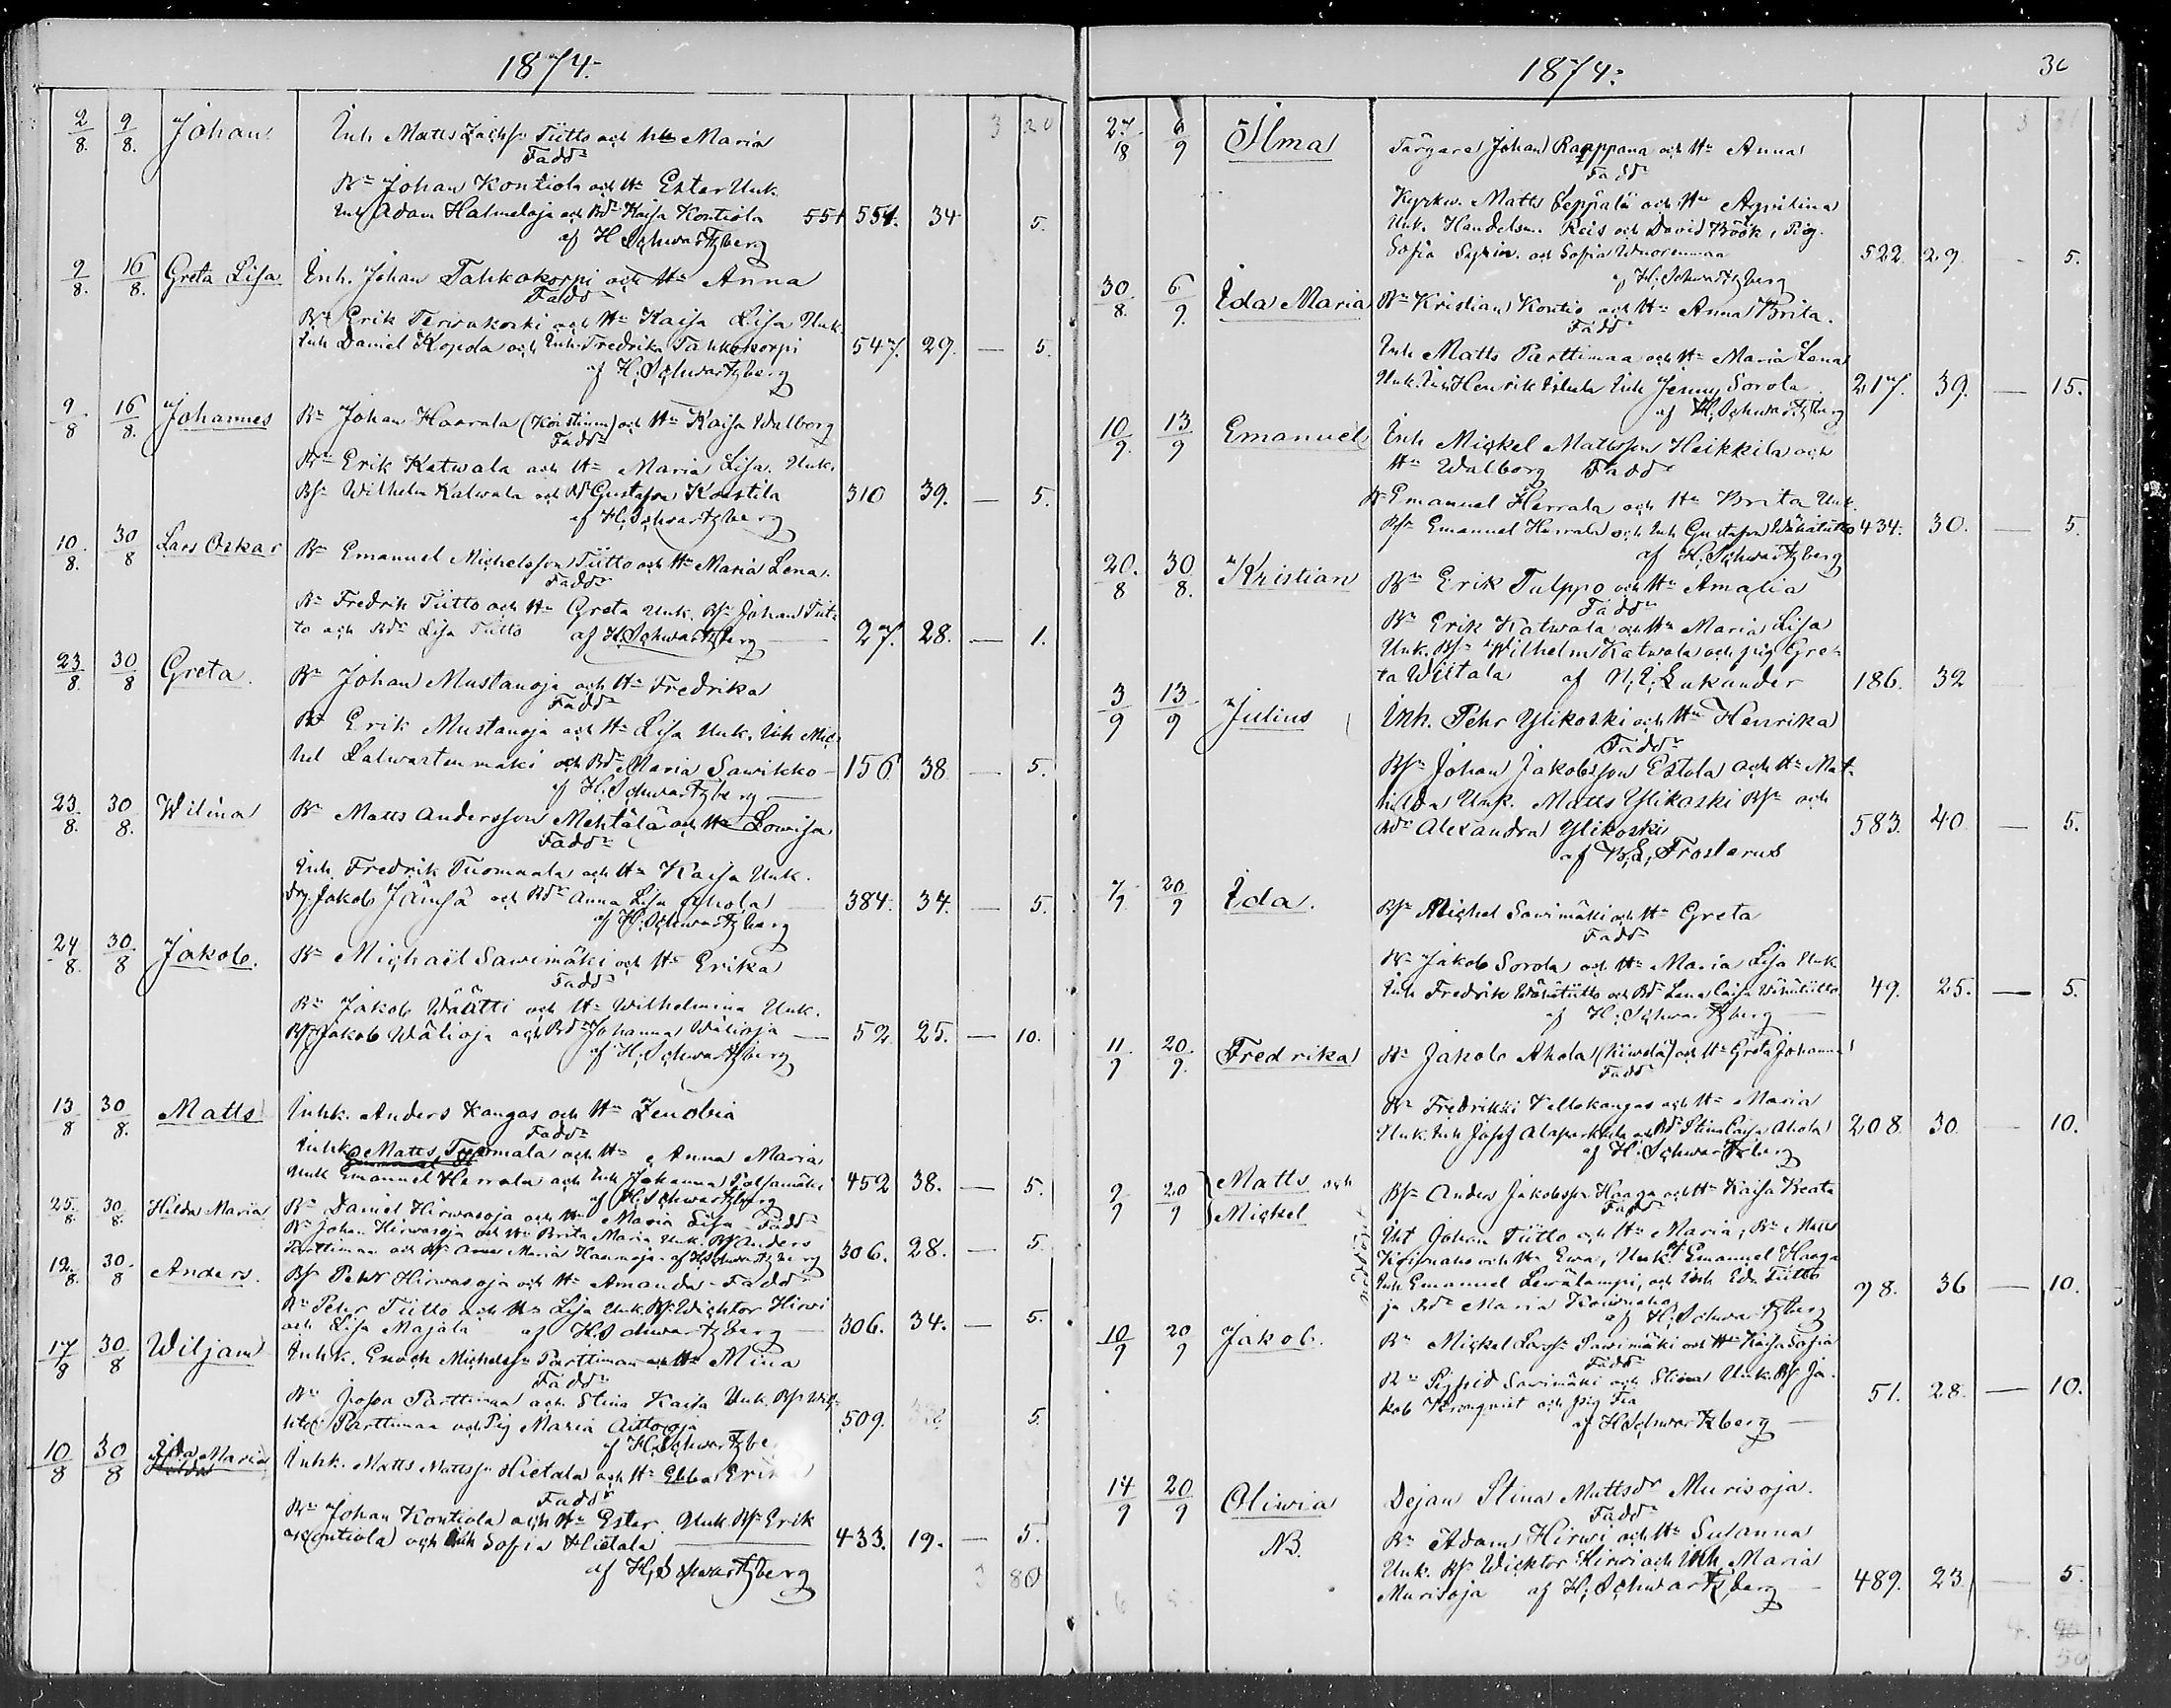 1874.
2/8. 9/8. Johan Inh Matts Zachsn Tiitto och Hu Maria 3 20
Fadd
Bn Johan Kontiola och Hu Ester Unk.
Inh Adam Halmeloja och Bdr Kaisa Kontiola 551 551. 34 5.
af H. Schwartzberg
9/8. 16/8. Greta Lisa Inh. Johan Tahkokorpi och Hu Anna
Fadd
Bn Erik Terwakoski och Hu Kaisa Lisa Unk.
Inh Daniel Kopola och Inh. Fredrika Tahkokorpi 547. 29. — 5.
af H. Schwartzberg
9/8 16/8. Johannes Bn Johan Haarala och Hu Kaisa Walborg
Fadd
Bn Erik Katwala och Hu Maria Lisa. Unk.
Bsn Wilhelm Katwala och Bdr Gustafva Koistila 310 39. — 5.
af H. Schwartzberg
10/8. 30/8 Lars Oskar Bn Emanuel Michelsson Tiitto och Hu Maria Lena.
Fadd
Bn Fredrik Tiitto och Hu Greta Unk. Bsn Johan Tiit-
to och Bdr Lisa Tiitto af H. Schwartzberg 27. 28. — 1.
23/8 30/8 Greta. Bn Johan Mustanoja och Hu Fredrika
Fadd
Bn Erik Mustanoja och Hu Lisa Unk. Inh Mic-
hel Latwastenmäki och Bdr Maria Sawikko 156 38 — 5.
af H. Schwartzberg
23/8. 30/8. Wilina Bn Matts Andersson Mehtälä och Hu Lowisa
Fadd
Inh. Fredrik Tuomaala och Hu Kaisa Unk.
Drg. Jakob Jämsä och Bdr Anna Lisa Ahola 384. 34. — 5.
af H. Schwartzberg
24/8. 30/8 Jakob. Bn Michaël Sawimäki och Hu Erika
Fadd
Bn Jakob Wäätti och Hu Wilhelmina Unk.
Bsn Jakob Wälioja och Bdr Johanna Wälioja 52 25. — 10.
af H. Schwartzberg
13/8 30/8. Matts Inhk. Anders Kangas och Hu Zenobia
Fadd
Inhk Matts Tuomala och Hu Anna Maria
Unk Emanuel Herrala och Inh Johanna 452 38. — 5.
af H. Schwartzberg
25/8. 30/8. Hilda Maria Bn Daniel Hirwasoja och Hu Maria Lisa - Fadd
Bn Johan Hirwasoja och Hu Brita Maria Unk. Bsn Anders
Parttimaa och Anna Maria Haarnoja af H. Schwartzberg 306. 28. — 5.
19/8. 30/8 Anders. Bsn Pehr Hirwasoja och Hu Amanda - Fadd
Bn Pehr Tiitto och Hu Lisa Unk. Bsn Wicktor Hirwi
och Lisa Majala af H. Schwartzberg 306. 34. — 5.
17/8 30/8 Wiljam Inhk. Enoch Michelssn Parttimaa och Hu Mina
Fadd
Bn Josefa Parttimaa och Stina Kaisa Unk. Bsn Wil-
Parttimaa och Pig Maria Aittooja 509. 5.
af H. Schwartzbe
10/8 30/8 Ida Maria Inhk. Matts Mattssn Hietala och Hu Ebba Erika
Fadd
Bn Johan Kontiola och Hu Ester. Unk. Bsn Erik
Kontiola och Inh Sofia Hietala 433. 19. — 5.
af H. Schwartzberg 3 80
1874. 36
27/8 6/9 Ilma Färgare Johan Raappana och Hu Anna 3
Fadd
Kyrkw. Matts Seppälä och Hu Agrilina
Unk. Handelsm. Reis och David Böök, Pig.
Sofia och Sofia Wuorenmaa 522. 29. - 5.
af H. Schwartzberg
30/8. 6/9. Ida Maria Bn Kristian Kontio och Hu Anna Brita.
Fadd
Inh Matts Parttimaa och Hu Maria Lena
Unk. Inh Henrik Inh Jenny Sorola 217. 39. — 15.
af H. Schwartzberg
10/9. 13/9 Emanuel Inh Mickel Mattsson Heikkila och
Hu Walborg Fadd
Bn Emanuel Herrala och Hu Brita Unk.
Bsn Emanuel Herrala och Inh Gustafva Wähätiitto 434. 30. — 5.
af H. Schwartzberg
20/8 30/8. Kristian Bn Erik Tulppo och Hu Amalia
Fadd
Bn Erik Katwala och Hu Maria Lisa
Unk. Bsn Wilhelm Katwala och pig Gre-
ta Wiitala af N. I. Lukander 186. 32
3/9 13/9 Julius Inh. Pehr Ylikoski och Hu Henrika
Fadd
Bsn Johan Jakobsson Estola och Hu Mat-
hilda Unk. Matts Ylikoski Bsn och
Bdr Alexandra Ylikoski 583. 40 — 5.
af B. E. Frosterus
7/9 20/9 Ida. Bsn Michel Sawimäki och Hu Greta
Fadd
Bn Jakob Sorola och Hu Maria Lisa Unk
Inh Fredrik Wähätiitto och Bdr Lena Caisa Wähätiitto 49. 25. — 5.
af H. Schwartzberg
11/9 20/9. Fredrika Bn Jakob Ahola och Hu Greta Johanna
Fadd
Bn Fredrikki Kellokangas och Hu Maria
Unk. Inh Josef och Bdr Stina Caisa Ahola 208. 30. — 10.
af H. Schwartzberg
9/9 20/9 Matts och Bsn Anders Jakobsson Haaga och Hu Kaisa Beata
Mickel Fadd
nöddöpt Inh Johan Tiitto och Hu Maria, Bn Matts
och Hu Ewa, Unk. Emanuel Haaga
Inh Emanuel Lewälampi, och Inh Eda Tiitto
ja Bdr Maria 98. 36 — 10.
af H. Schwartzberg
10/9 20/9 Jakob. Bn Mickel Larssn Sawimäki och Hu Kaisa Sofia
Fadd
Bn Sigfrid Sawimäki och Stina Unk. Bsn Ja-
kob Kronqvist och pig Fia 51. 28. — 10.
af H. Schwartzberg
14/9 20/9 Oliwia Dejan Stina Mattsdr Murisoja.
Fadd
NB. Bn Adam Hirwi och Hu Susanna
Unk. Bsn Wicktor Hirwi och Inh Maria
Murisoja af H. Schwartzberg 489. 23. — 5.
4. 50